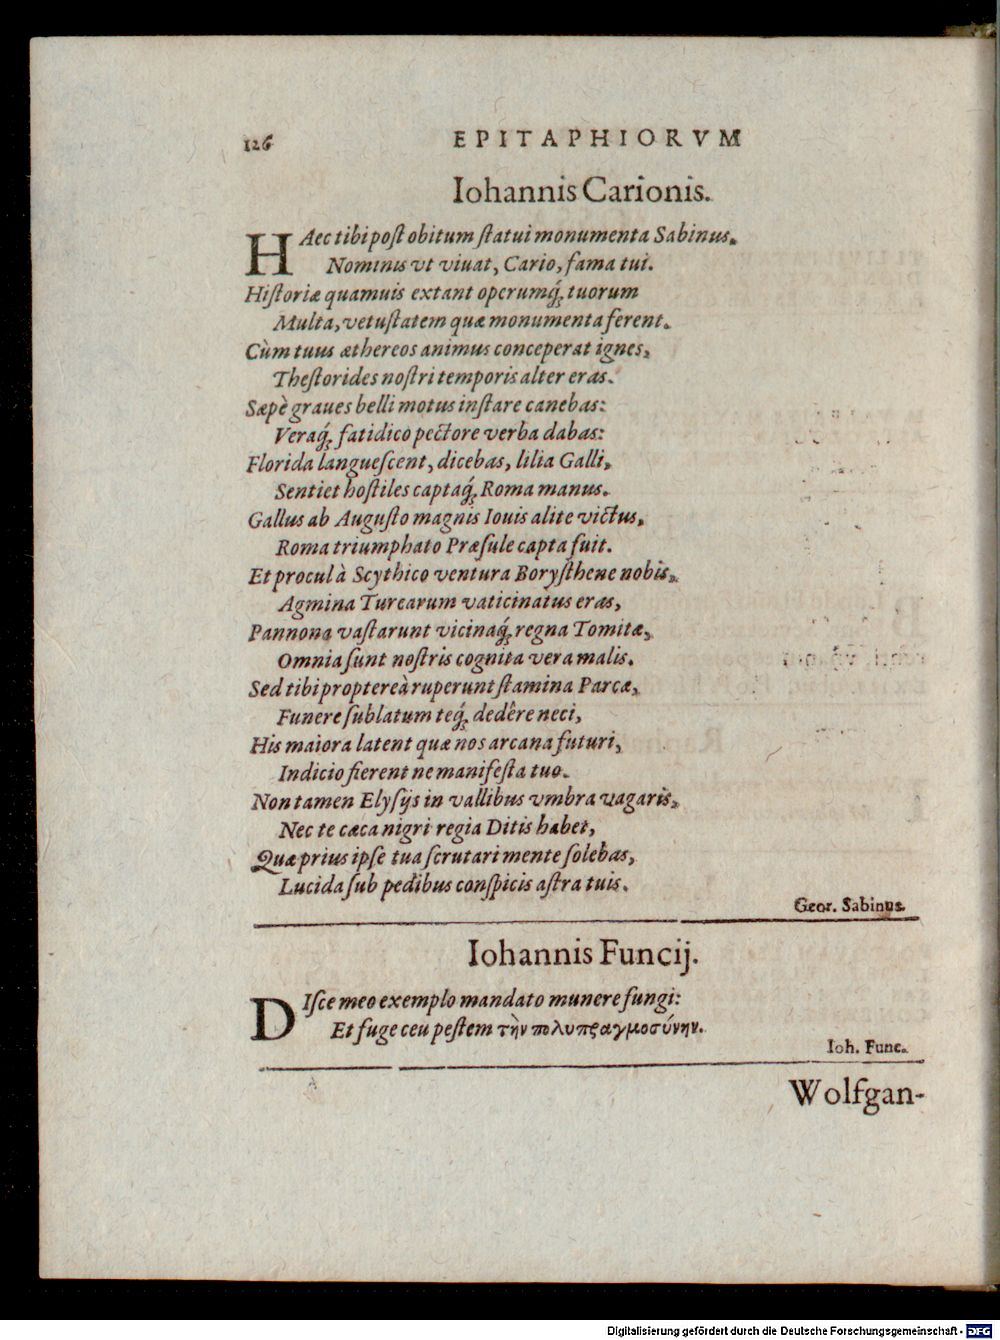 126 EPITAPHIORVM
Iohannis Carionis.
HAec tibi post obitum statui monumenta Sabinus.
Nominis vt viuat, Cario, fama tui.
Historiæ quamuis extant operumq́; tuorum
Multa, vetustatem quæ monumenta ferent.
Cùm tuus æthereos animus conceperat ignes,
Thestorides nostri temporis alter eras.
Sæpè graues belli motus instare canebas:
Veraq́; fatidico pectore verba dabas:
Florida languescent, dicebas, lilia Galli,
Sentiet hostiles captaq́; Roma manus.
Gallus ab Augusto magnis Iouis alite victus,
Roma triumphato Præsule capta fuit.
Et procul à Scythico ventura Borysthene nobis,
Agmina Turcarum vaticinatus eras,
Pannona vastarunt vicinaq́; regna Tomitæ,
Omnia sunt nostris cognita vera malis.
Sed tibi proptereà ruperunt stamina Parcæ,
Funere sublatum teq́; dedêre neci,
His maiora latent quæ nos arcana futuri,
Indicio fierent ne manifesta tuo.
Non tamen Elysijs in vallibus vmbra vagaris,
Nec te cæca nigri regia Ditis habet,
Quæ prius ipse tua scrutari mente solebas,
Lucida sub pedibus conspicis astra tuis.
Geor. Sabinus.
Iohannis Funcij.
DIsce meo exemplo mandato munere fungi:
Et fuge ceu pestem τὴν πολυπραγμοσύνην.
Ioh. Func.
Wolfgan-
Digitalisierung gefördert durch die Deutsche Forschungsgemeinschaft - DFG